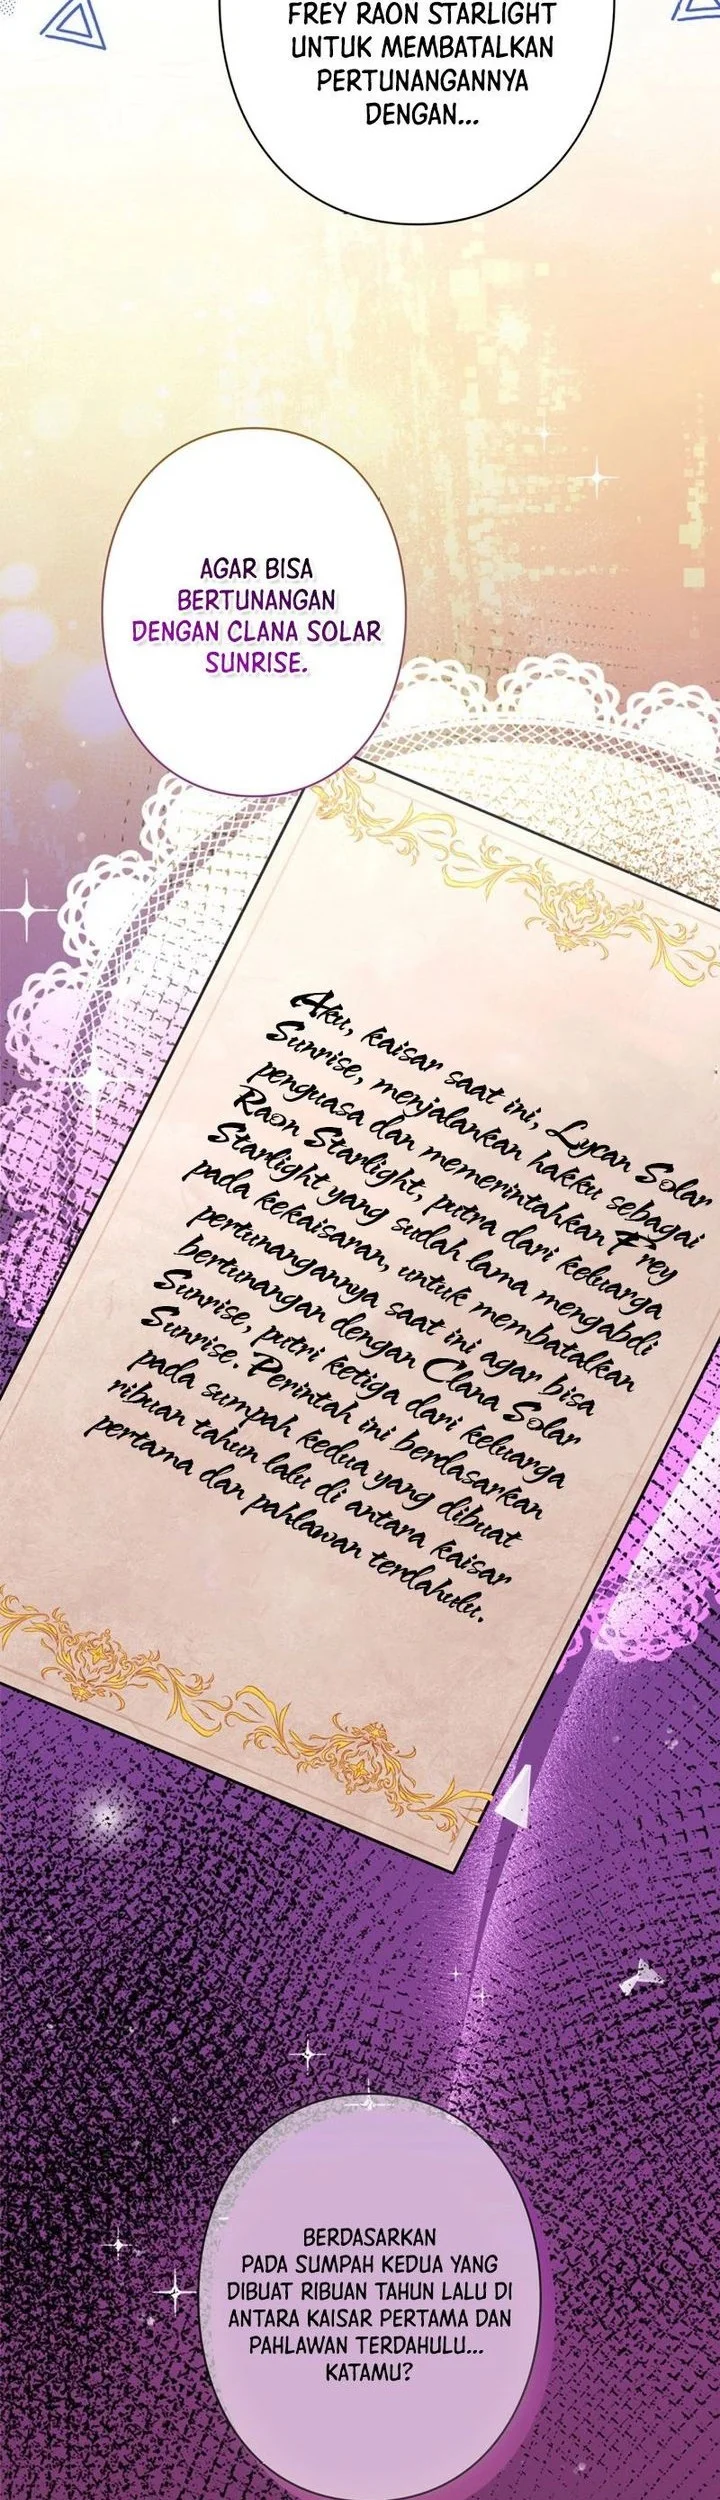 FREY RAON STARLIGHT
UNTUK MEMBATALKAN
PERTUNANGANNYA
DENGAN...
AGAR BISA
BERTUNANGAN
DENGAN CLANA SOLAR
SUNRISE.
Aku, kaisar saat ini, Lycan Solar
Sunrise, menjalankan hakku sebagai
penguasa dan memerintahkan Frey
Raon Starlight, putra dari keluarga
Starlight yang sudah lama mengabdi
pada kekaisaran, untuk membatalkan
pertunangannya saat ini agar bisa
bertunangan dengan Clana Solar
Sunrise, putri ketiga dari keluarga
Sunrise. Perintah ini berdasarkan
pada sumpah kedua yang dibuat
ribuan tahun lalu di antara kaisar
pertama dan pahlawan terdahulu.
BERDASARKAN
PADA SUMPAH KEDUA YANG
DIBUAT RIBUAN TAHUN LALU DI
ANTARA KAISAR PERTAMA DAN
PAHLAWAN TERDAHULU...
KATAMU?